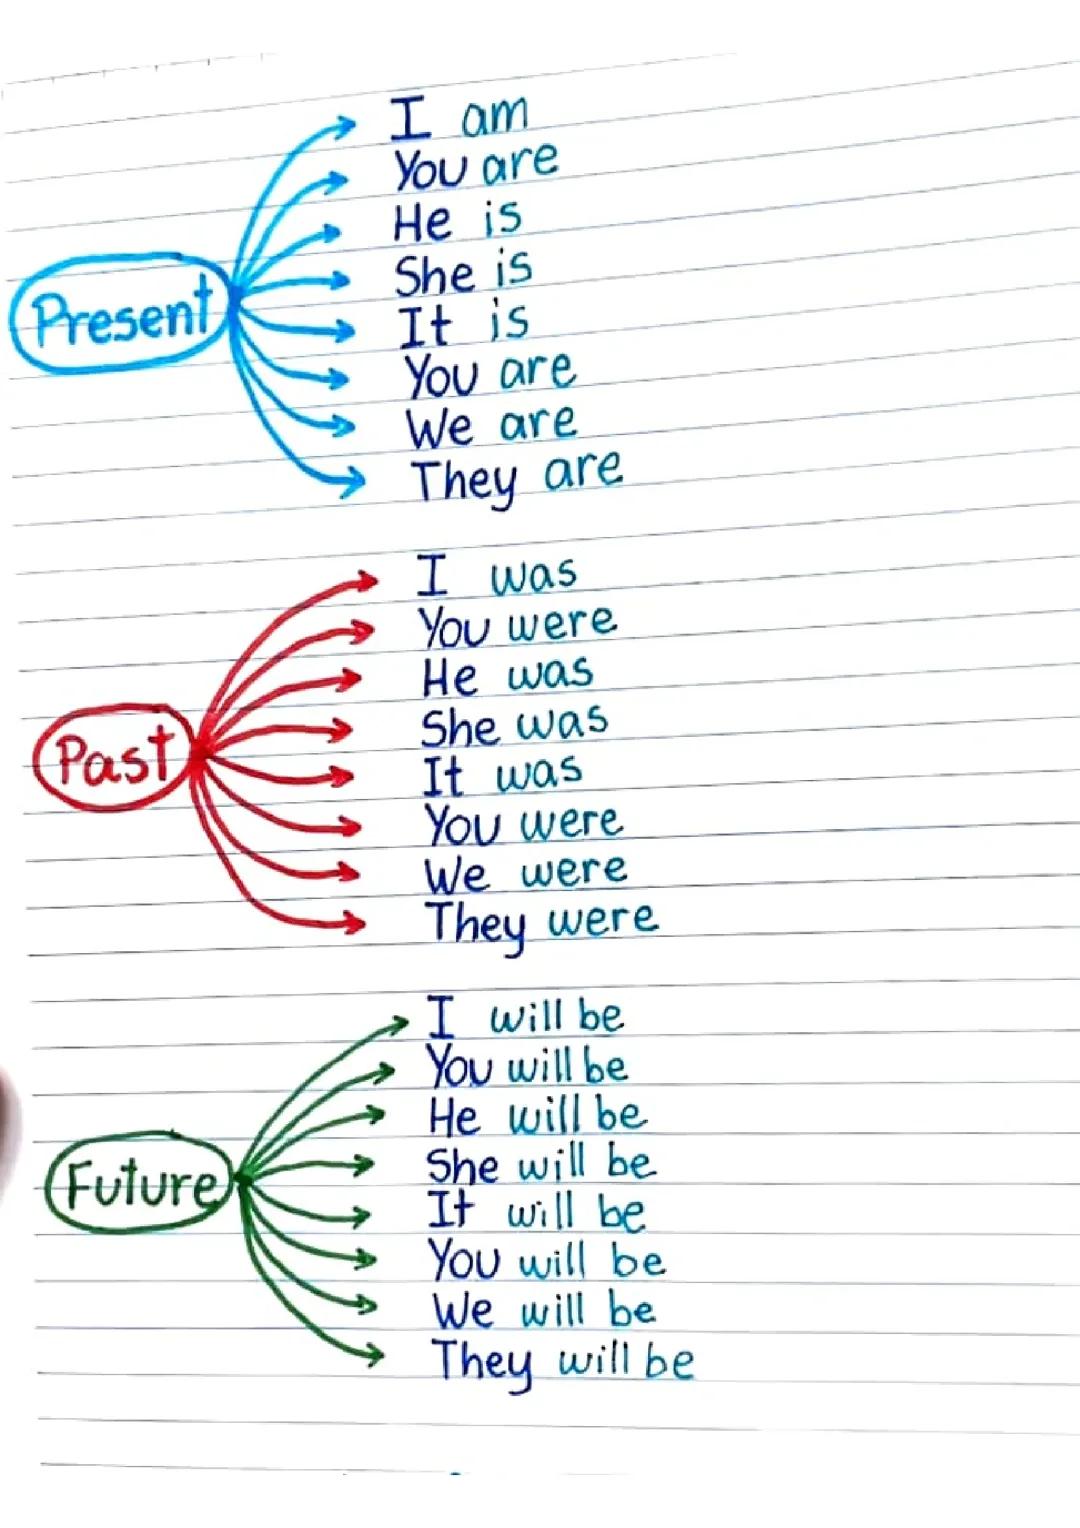 Present
I am
You are
He is
She is
It is
You are
We are
They are
Past
I was
You were
He was
She was
It was
You were
We were
They were
Future
I will be
You will be
He will be
She will be
It will be
You will be
We will be
They will be